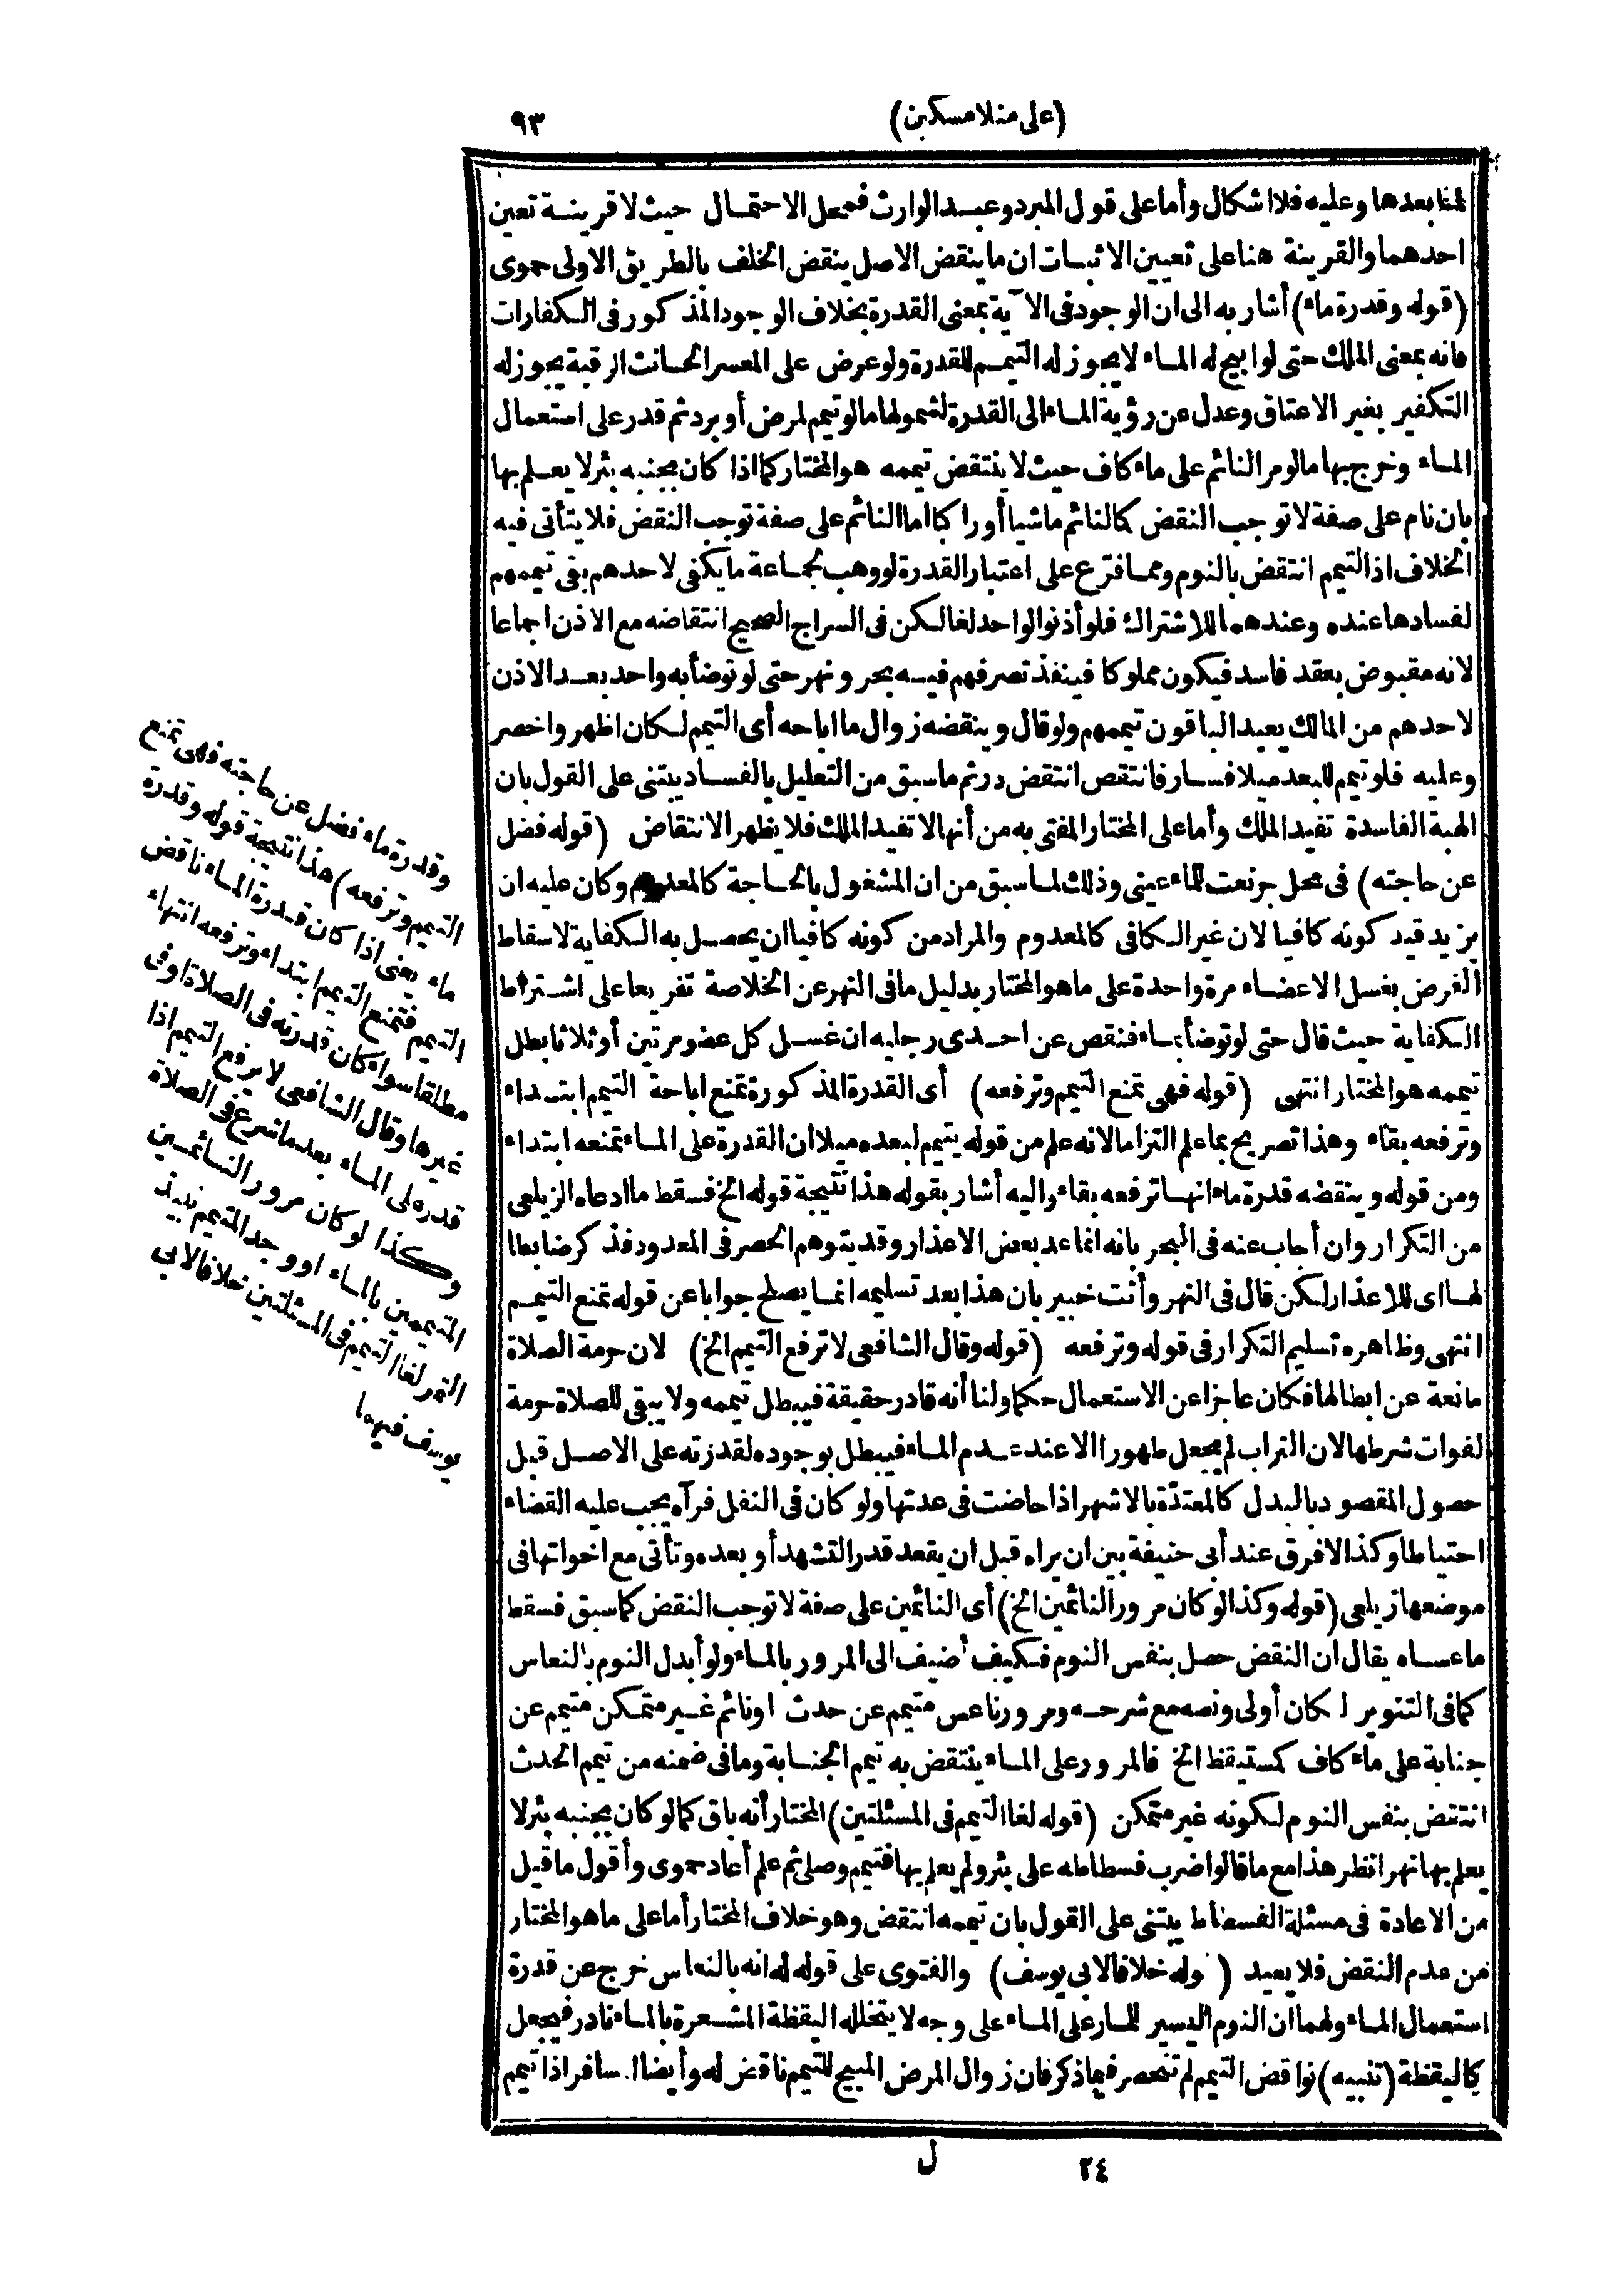 (على منلا مسكين)
٩٣
لما بعدها وعليه فلا اشكال وأما على قول المبرد وعبد الوارث فمحل الاحتمال حيث لا قرينة تعين
احدهما والقرينة هنا على تعيين الاثبات ان ما ينقض الاصل ينقض الخلف بالطريق الاولى حموى
(قوله وقدرة ماء) أشار به الى ان الوجود فى الآية بمعنى القدرة بخلاف الوجود المذكور فى الكفارات
فانه بمعنى الملك حتى لو ابيح له الماء لا يجوز له التيمم للقدرة ولو عرض على المعسر الحانث الرقبة يجوز له
التكفير بغير الاعتاق وعدل عن رؤية الماء الى القدرة لشمولها ما لو تيمم لمرض أو برد ثم قدر على استعمال
الماء وخرج بها ما لو مر النائم على ماء كاف حيث لا ينتقض تيممه هو المختار كما اذا كان بجنبه بئر لا يعلم بها
بان نام على صفة لا توجب النقض كالنائم ماشيا أو راكبا اما النائم على صفة توجب النقض فلا يتأتى فيه
الخلاف اذ التيمم انتقض بالنوم ومما فرّع على اعتبار القدرة لو وهب لجماعة ما يكفى لاحدهم بقى تيممهم
لفسادها عنده وعندهما للاشتراك فلو أذنوا لواحد لغا لكن فى السراج الصحيح انتقاضه مع الاذن اجماعا
لانه مقبوض بعقد فاسد فيكون مملوكا فينفذ تصرفهم فيه بحر ونهر حتى لو توضأ به واحد بعد الاذن
لاحدهم من المالك يعيد الباقون تيممهم ولو قال وينقضه زوال ما اباحه أى التيمم لكان اظهر واخصر
وعليه فلو تيمم للبعد ميلا فسار فانتقص انتقض در ثم ما سبق من التعليل بالفساد يبتنى على القول بان
الهبة الفاسدة تفيد الملك وأما على المختار المفتى به من أنها لا تفيد الملك فلا يظهر الانتقاض (قوله فضل
عن حاجته) فى محل جر نعت للماء عينى وذلك لما سبق من ان المشغول بالحاجة كالمعدوم وكان عليه ان
يزيد قيد كونه كافيا لان غير الكافى كالمعدوم والمراد من كونه كافيا ان يحصل به الكفاية لاسقاط
الفرض بغسل الاعضاء مرة واحدة على ما هو المختار بدليل ما فى النهر عن الخلاصة تفريعا على اشتراط
الكفاية حيث قال حتى لو توضأ بماء فنقص عن احدى رجليه ان غسل كل عضو مرتين أو ثلاثا بطل
تيممه هو المختار انتهى (قوله فهى تمنع التيمم وترفعه) أى القدرة المذكورة تمنع اباحة التيمم ابتداء
وترفعه بقاء وهذا تصريح بما علم التزاما لانه علم من قوله يتيمم لبعده ميلا ان القدرة على الماء تمنعه ابتداء
ومن قوله وينقضه قدرة ماء انها ترفعه بقاء واليه أشار بقوله هذا نتيجة قوله الخ فسقط ما ادعاه الزيلعى
من التكرار وان أجاب عنه فى البحر بانه انما عد بعض الاعذار وقد يتوهم الحصر فى المعدود فذكر ضابطا
لها اى للاعذار لكن قال فى النهر وأنت خبير بان هذا بعد تسليمه انما يصلح جوابا عن قوله تمنع التيمم
انتهى وظاهره تسليم التكرار فى قوله وترفعه (قوله وقال الشافعى لا ترفع التيمم الخ) لان حرمة الصلاة
مانعة عن ابطالها فكان عاجزا عن الاستعمال حكما ولنا أنه قادر حقيقة فيبطل تيممه ولا يبقى للصلاة حرمة
لفوات شرطها لان التراب لم يجعل طهورا الا عند عدم الماء فيبطل بوجوده لقدرته على الاصل قبل
حصول المقصود بالبدل كالمعتدّة بالاشهر اذا حاضت فى عدتها ولو كان فى النفل فرآه يجب عليه القضاء
احتياطا وكذا لا فرق عند أبى حنيفة بين ان يراه قبل ان يقعد قدر التشهد أو بعده وتأتى مع اخواتها فى
موضعها زيلعى (قوله وكذا لو كان مرور النائمين الخ) أى النائمين على صفة لا توجب النقض كما سبق فسقط
ما عساه يقال ان النقض حصل بنفس النوم فكيف أضيف الى المرور بالماء ولو أبدل النوم بالنعاس
كما فى التنوير لكان أولى ونصه مع شرحه ومرور ناعس متيمم عن حدث او نائم غير متمكن متيمم عن
جنابة على ماء كاف كمستيقظ الخ فالمرور على الماء ينتقض به تيمم الجنابة وما فى ضمنه من تيمم الحدث
انتقض بنفس النوم لكونه غير متمكن (قوله لغا التيمم فى المسئلتين) المختار أنه باق كما لو كان بجنبه بئر لا
يعلم بها نهر انظر هذا مع ما قالوا ضرب فسطاطه على بئر ولم يعلم بها فتيمم وصلى ثم علم أعاد حموى وأقول ما قيل
من الاعادة فى مسئلة الفسطاط يبتنى على القول بان تيممه انتقض وهو خلاف المختار أما على ما هو المختار
من عدم النقض فلا يعيد (قوله خلافا لابى يوسف) والفتوى على قوله له انه بالنعاس خرج عن قدرة
استعمال الماء ولهما ان النوم اليسير للمار على الماء على وجه لا يتخلله اليقظة المشعرة بالماء نادر فيجعل
كاليقظة (تنبيه) نواقض التيمم لم تنحصر فيما ذكر فان زوال المرض المبيح للتيمم ناقض له وأيضا المسافر اذا تيمم
وقدرة ماء فضل عن حاجته فهى تمنع
التيمم وترفعه) هذا نتيجة قوله وقدرة
ماء يعنى اذا كان قدرة الماء ناقض
التيمم فتمنع التيمم ابتداء وترفعه انتهاء
مطلقا سواء كان قدرته فى الصلاة او فى
غيرها وقال الشافعى لا يرفع التيمم اذا
قدر على الماء بعد ما شرع فى الصلاة
وكذا لو كان مرور النائمين
المتيممين بالماء او وجد المتيمم نبيذ
التمر لغا التيمم فى المسئلتين خلافا لابى
يوسف فيهما
٢٤
ل